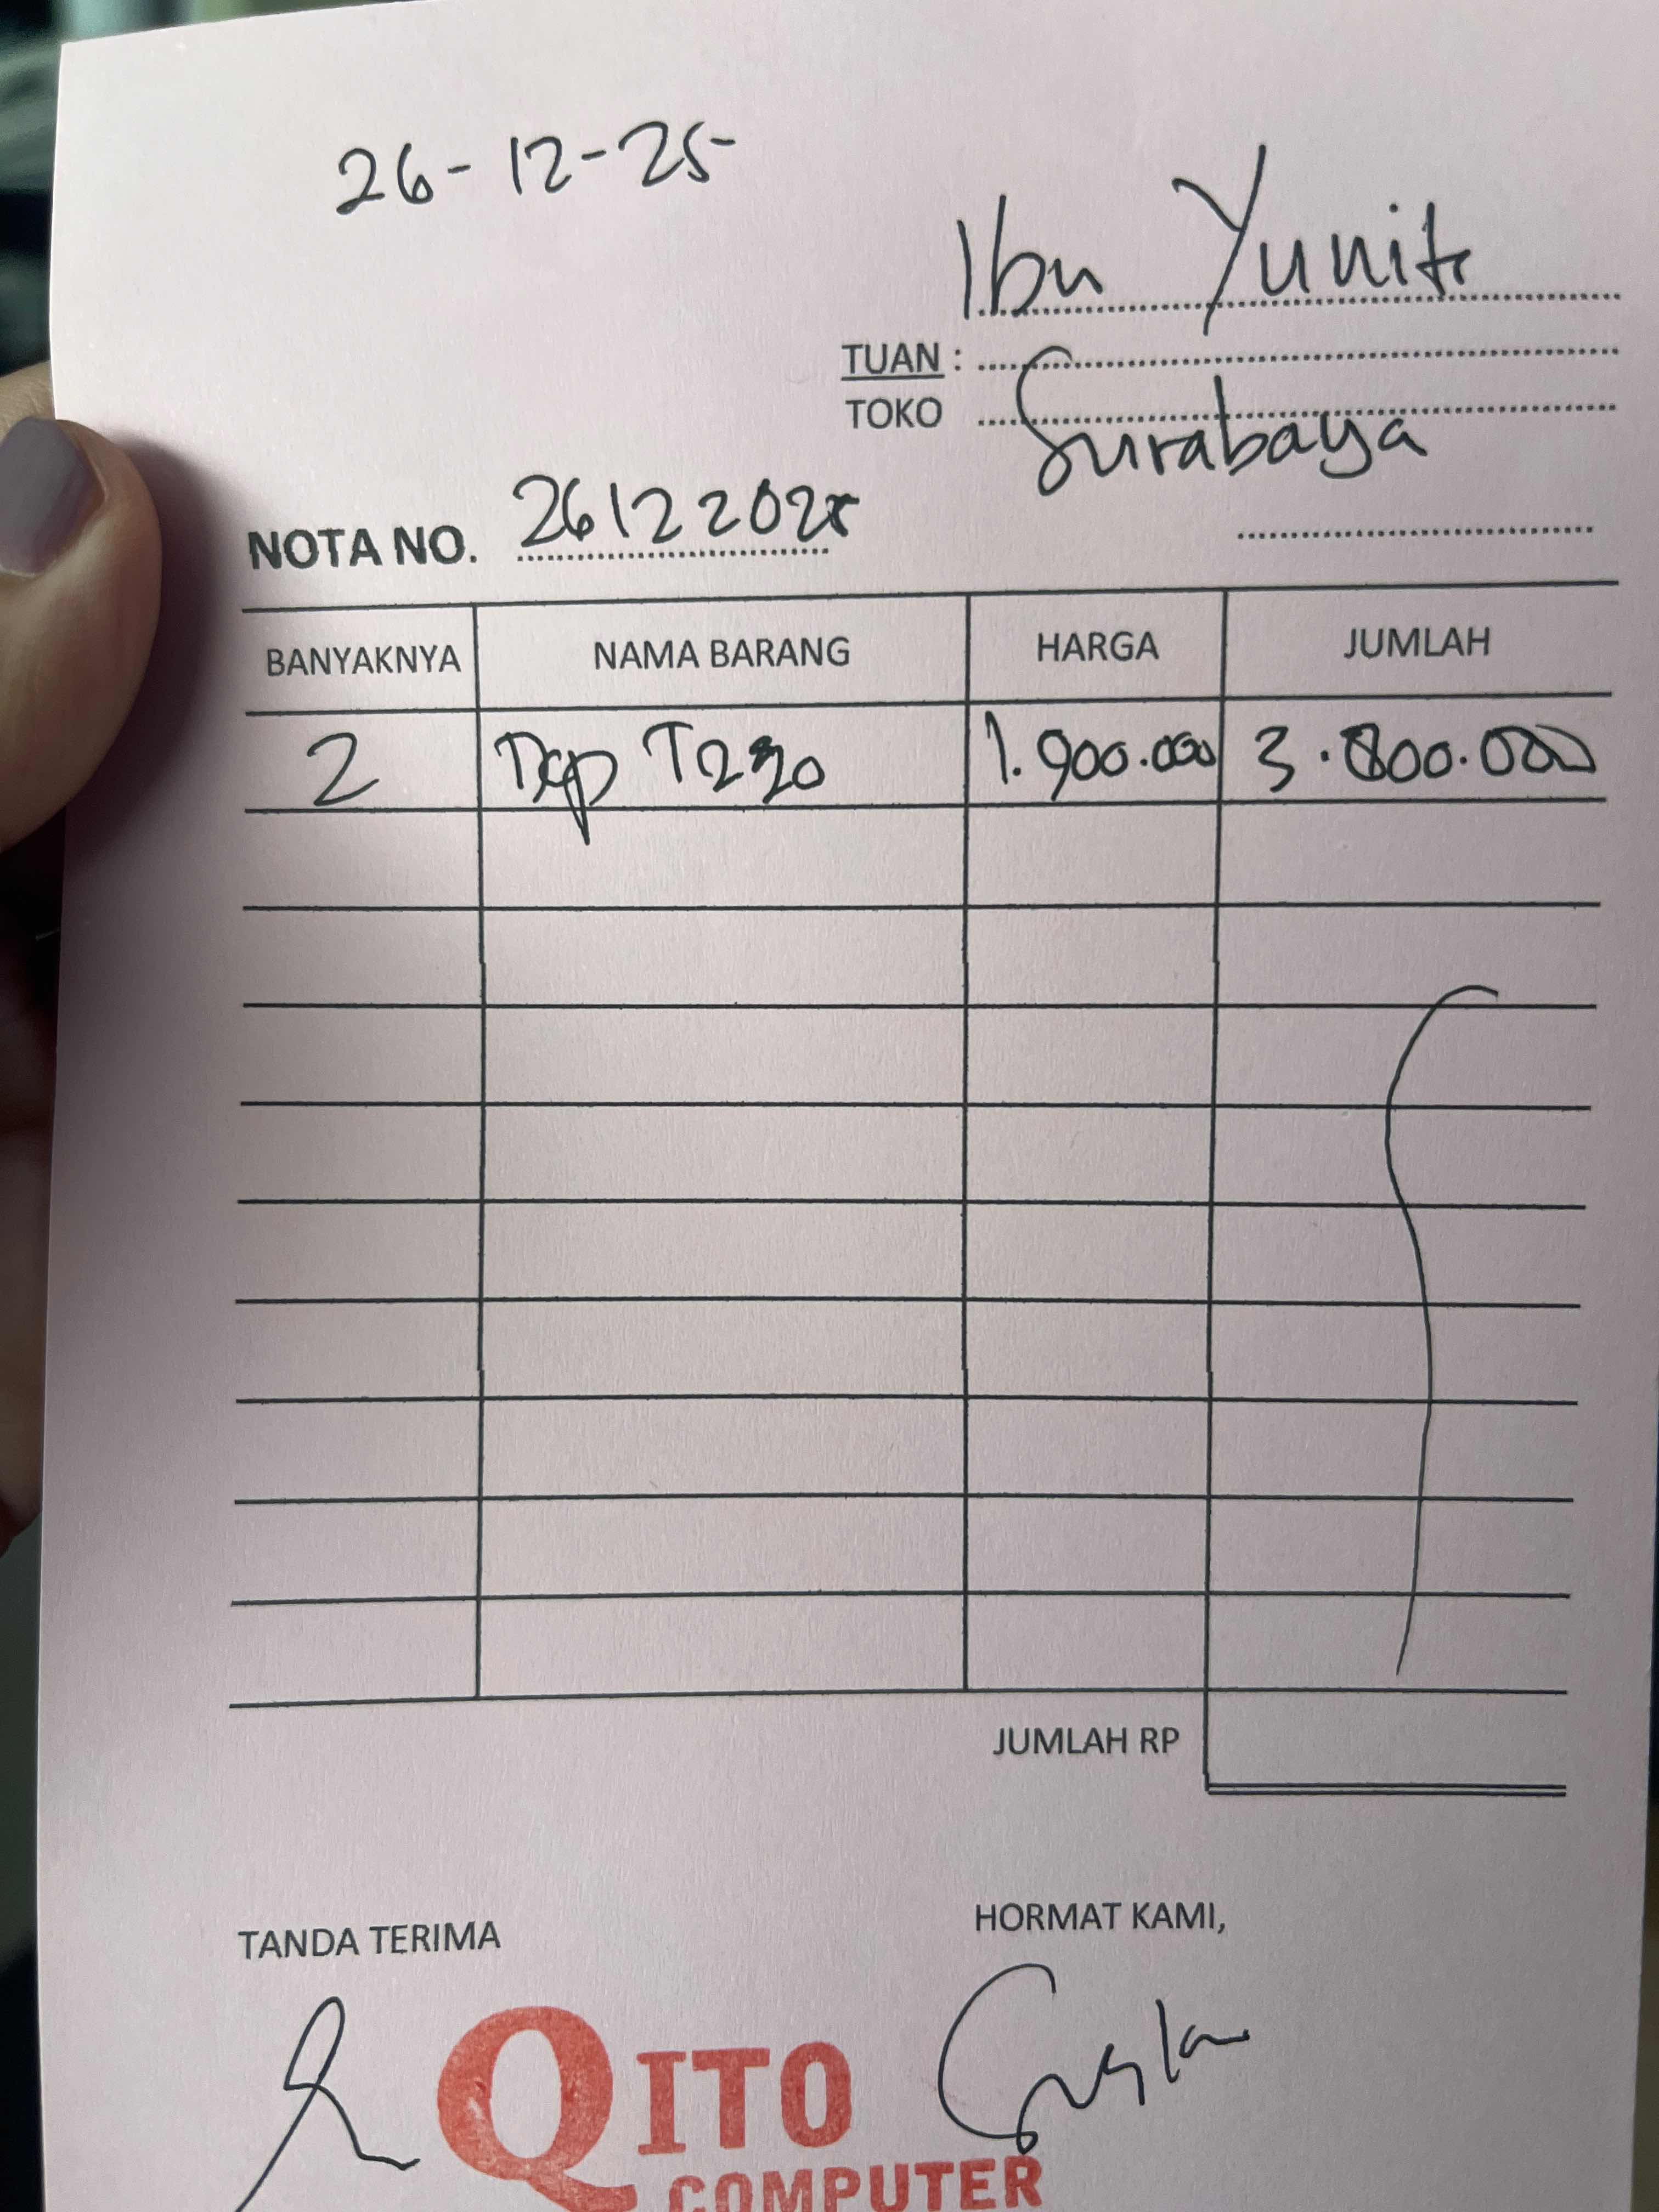 26-12-25
Ibu Yunita
TUAN :
Surabaya
TOKO
NOTA NO. 26122025
BANYAKNYA NAMA BARANG HARGA JUMLAH
2 Dcp T220 1.900.000 3.800.000
JUMLAH RP
TANDA TERIMA HORMAT KAMI,
QITO
COMPUTER